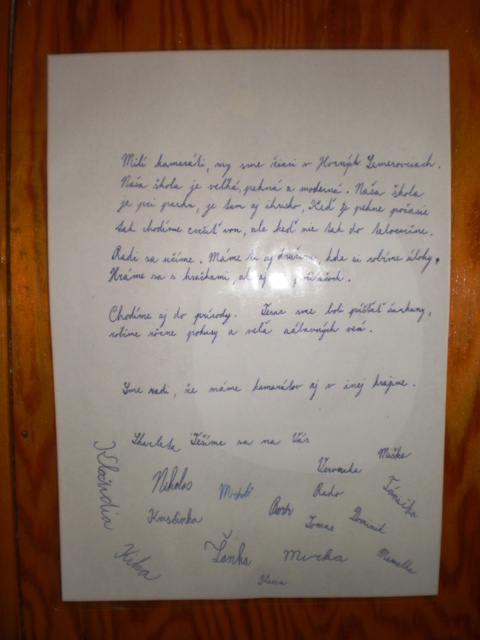 Milí kamaráti, my sme žiaci v Horných Semerovciach.
Naša škola je veľká, pekná a moderná. Naša škola
je pri parku, je tam aj ihrisko. Keď je pekne počasie
tak chodíme cvičiť von, ale keď nie tak do telocvične.
Radi sa učíme. Máme tu aj družinu, kde si robíme úlohy.
Hráme sa s hračkami, aj
Chodíme aj do prírody. Teraz sme boli púšťať šarkany,
robíme rôzne pokusy a veľa zábavných vecí.
Sme radi, že máme kamarátov aj v inej krajine.
Tešíme sa na Vás
Miška
Veronika
Klaudia
Nikolas
Rado
Kristínka
Tomas
Dominik
Kika
Lenka
Mirka